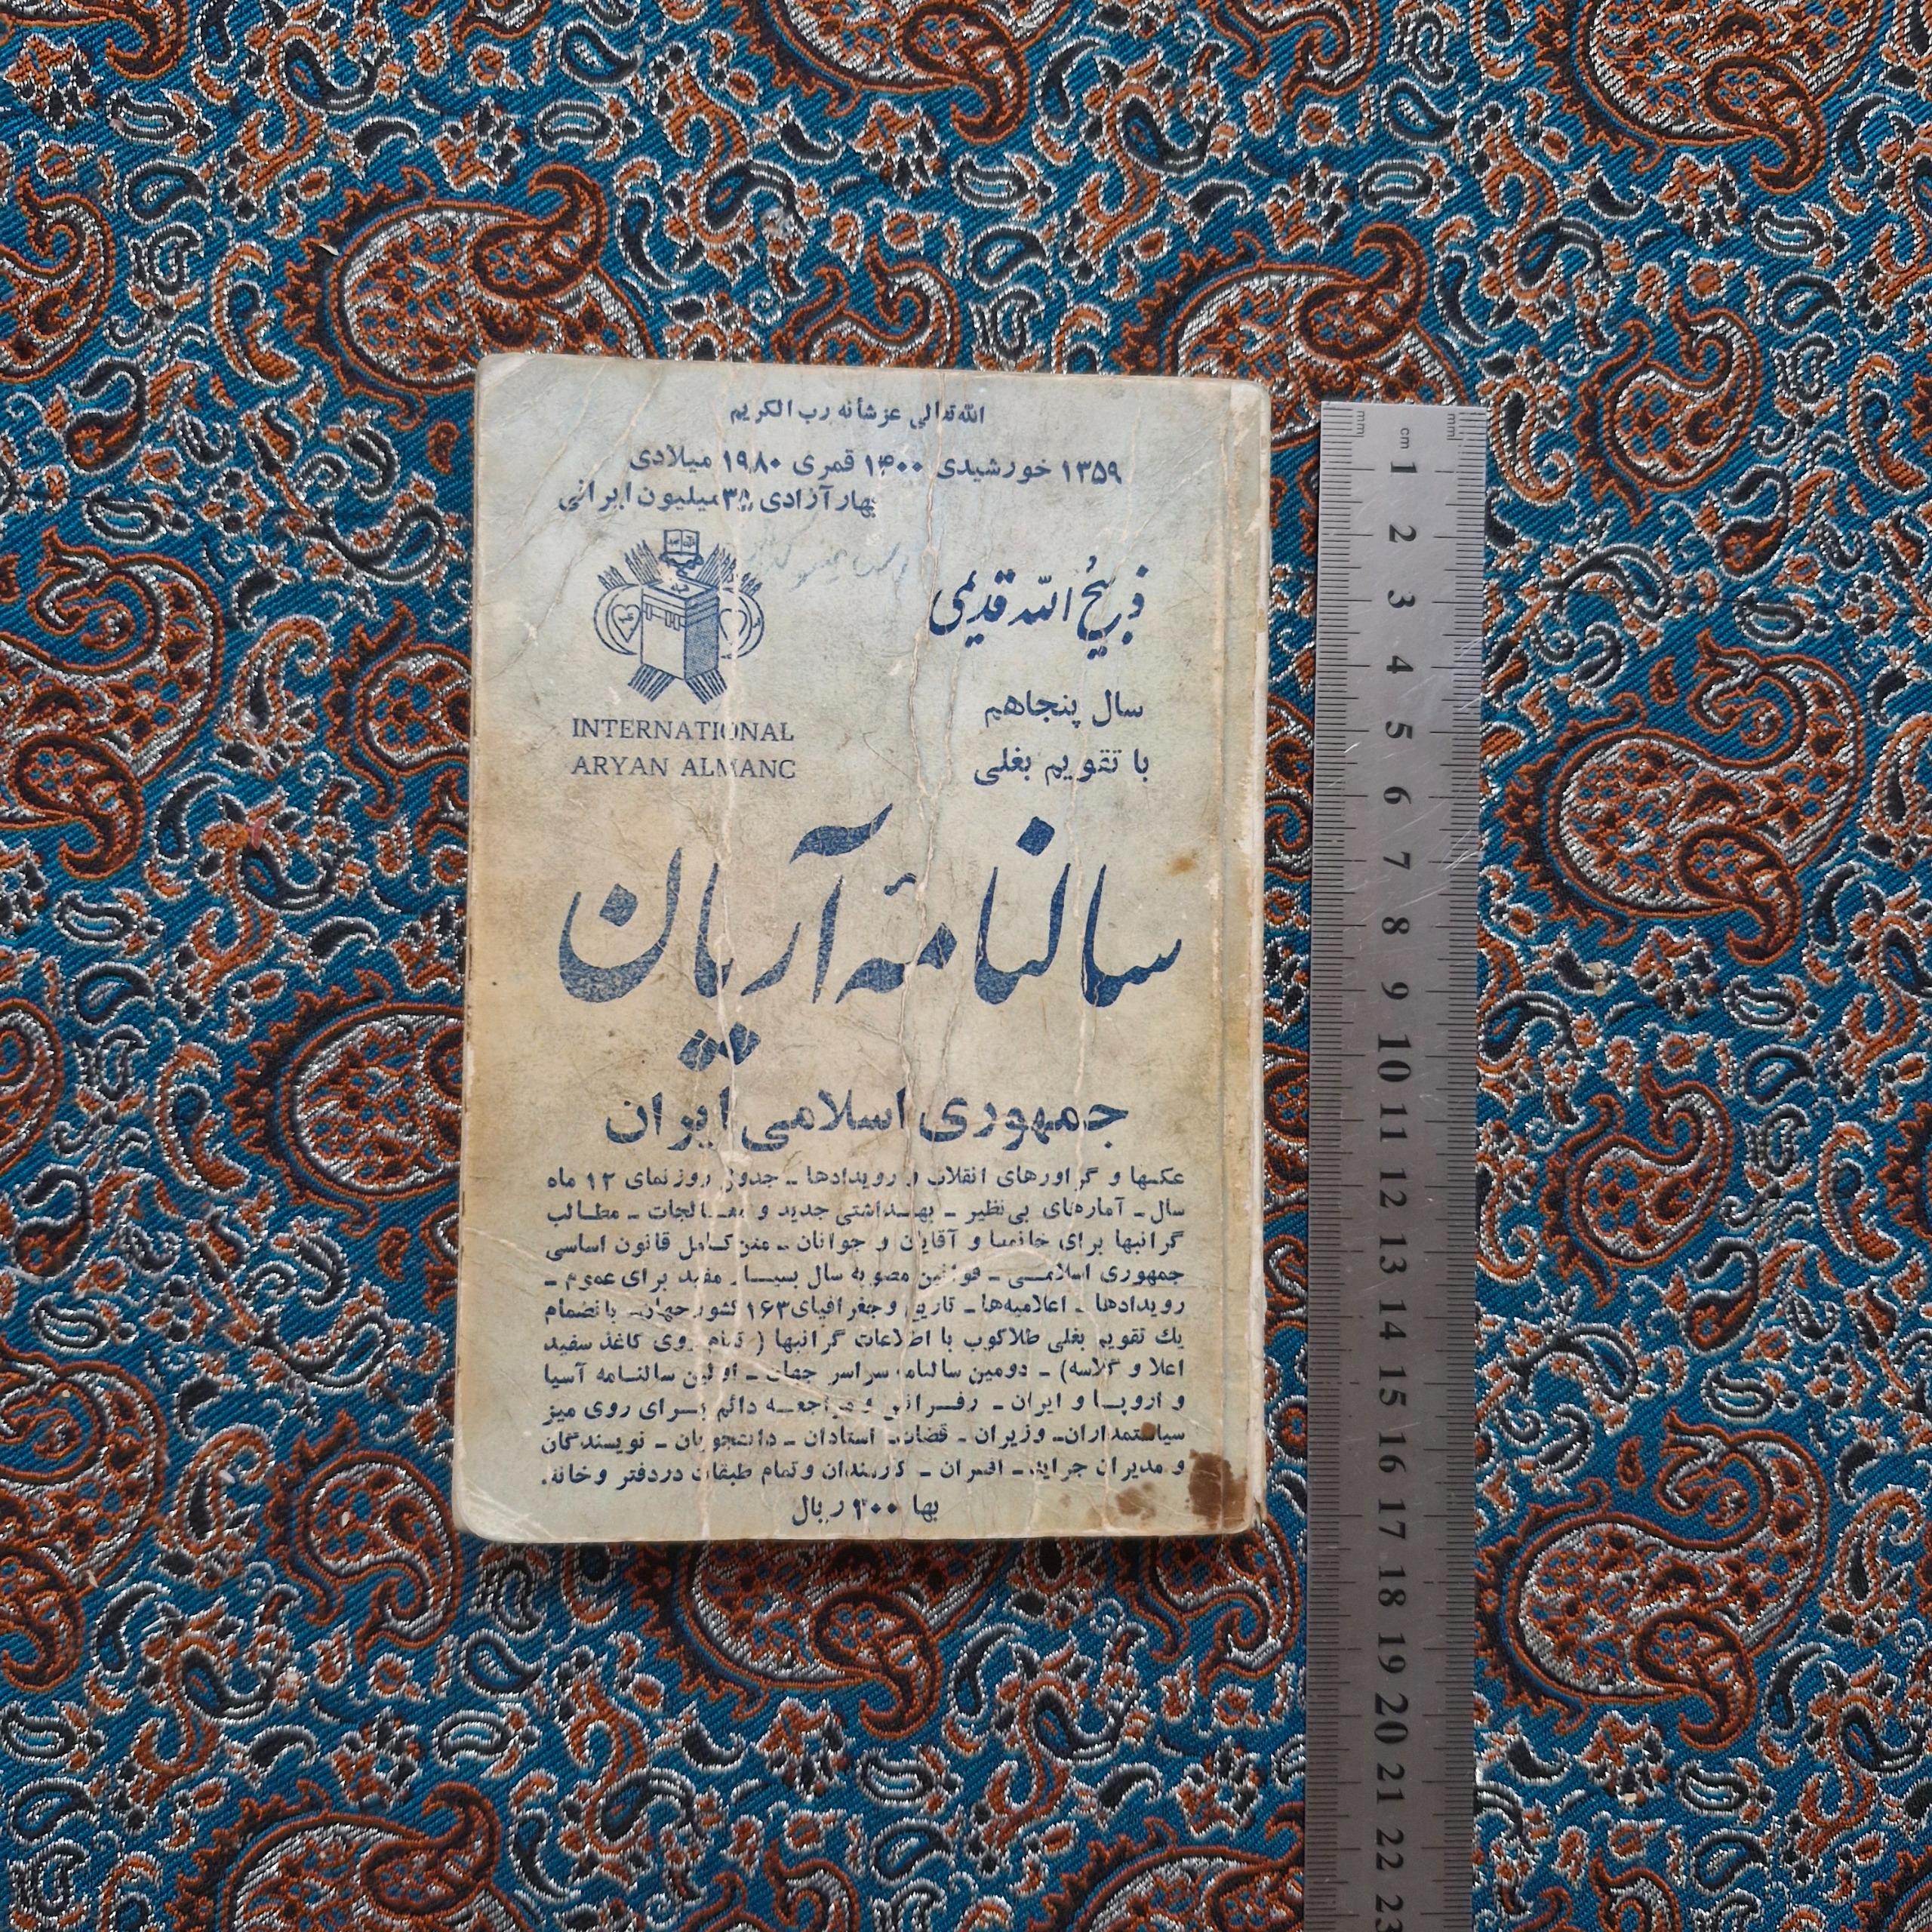 الله تعالی عز شأنه رب الکریم
۱۳۵۹ خورشیدی ۱۴۰۰ قمری ۱۹۸۰ میلادی
بهار آزادی ۳۵ میلیون ایرانی
ذبیح الله قدیمی
سال پنجاهم
با تقویم بغلی
INTERNATIONAL
ARYAN ALMANC
سالنامهٔ آریان
جمهوری اسلامی ایران
عکسها و گراورهای انقلاب و رویدادها ـ جدول روزنمای ۱۲ ماه
سال ـ آمارهای بی‌نظیر ـ بهداشتی جدید و معالجات ـ مطالب
گرانبها برای خانمها و آقایان و جوانان ـ متن کامل قانون اساسی
جمهوری اسلامی ـ قوانین مصوبه سال بسیار مفید برای عموم ـ
رویدادها ـ اعلامیه‌ها ـ تاریخ وجغرافیای ۱۶۳ کشور جهان ـ بانضمام
یك تقویم بغلی طلاکوب با اطلاعات گرانبها ( تمام روی کاغذ سفید
اعلا و گلاسه) ـ دومین سالنامه سراسر جهان ـ اولین سالنامه آسیا
و اروپا و ایران ـ رفرانس و مراجعه دائم برای روی میز
سیاستمداران ـ وزیران ـ قضات ـ استادان ـ دانشجویان ـ نویسندگان
و مدیران جراید ـ افسران ـ کارمندان وتمام طبقات دردفتر وخانه.
بها ۲۰۰ ریال
cm
mm
mm
1
2
3
4
5
6
7
8
9
10
11
12
13
14
15
16
17
18
19
20
21
22
23